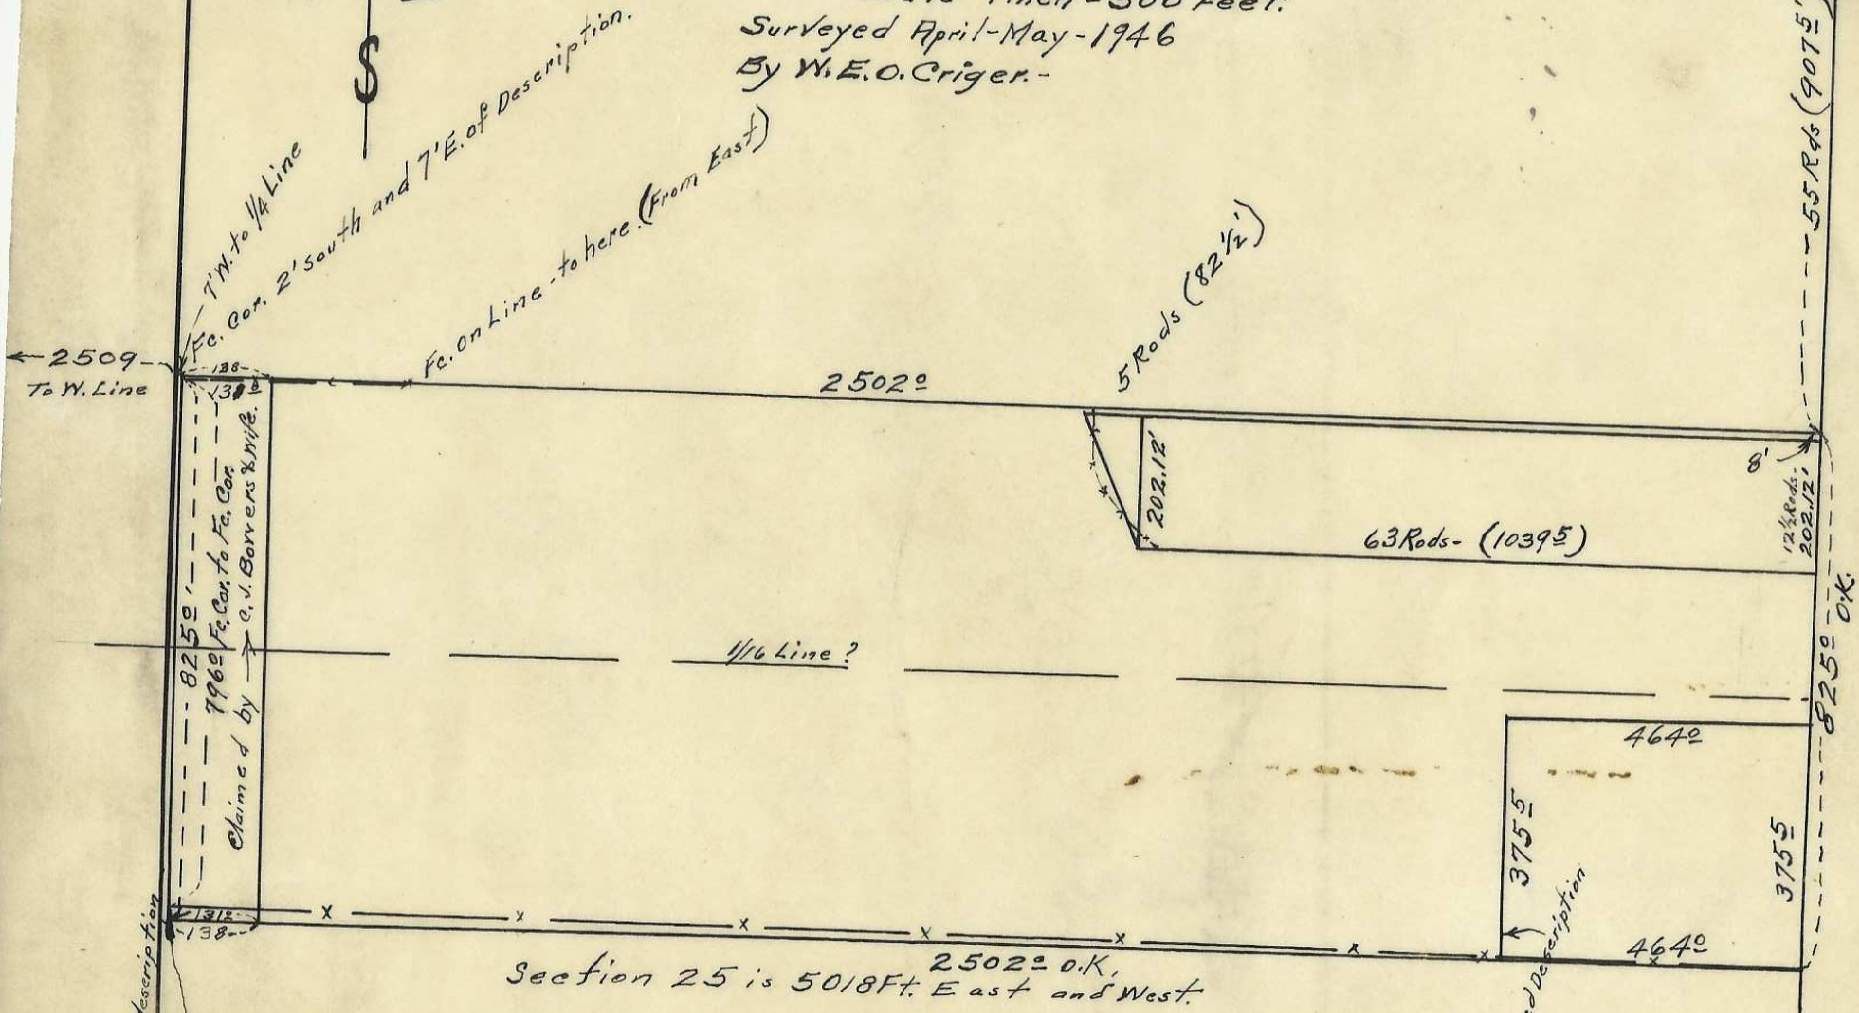 1 inch = 300 Feet.
Surveyed April-May-1946
By W.E.O. Criger.-
S
7' W. to 1/4 Line
Fc. Cor. 2' south and 7' E. of Description.
Fc. on Line - to here. (From East)
5 Rods (82 1/2')
55 Rds (907 5')
←2509
To W. Line
138
2502 0
8'
12 1/2 Rods-
202.12'
202.12'
63 Rods- (1039 5)
825 0'
796 0 Fc. Cor. to Fc. Cor.
Claimed by → C. J. Borvers & Wife.
1/16 Line ?
825 0 O.K.
464 0
375 5
375 5
464 0
131 0
138
2502 0 O.K.
Section 25 is 5018 Ft. East and West.
description
d Description